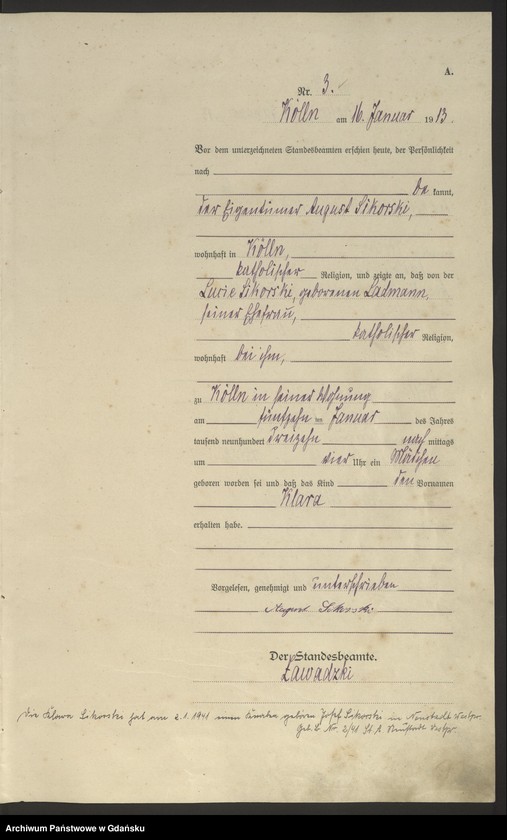 A.
Nr. 3.
Kölln am 16. Januar 1913.
Vor dem unterzeichneten Standesbeamten erschien heute, der Persönlichkeit
nach
be kannt,
der Eigentümer August Sikorski,
wohnhaft in Kölln,
katholischer Religion, und zeigte an, daß von der
Lucie Sikorski, geborenen Ladmann,
seiner Ehefrau,
katholischer Religion,
wohnhaft bei ihm,
zu Kölln in seiner Wohnung
am fünfzehn ten Januar des Jahres
tausend neunhundert dreizehn nach mittags
um vier Uhr ein Mädchen
geboren worden sei und daß das Kind den Vornamen
Klara
erhalten habe.
Vorgelesen, genehmigt und unterschrieben
August Sikorski
Der Standesbeamte.
Zawadzki
Die Klara Sikorska hat am 2.1.1941 einen Knaben geboren Josef Sikorski in Neustadt Westpr.
Geb. B. Nr. 2/41 St. A. Neustadt Westpr.
Archiwum Państwowe w Gdańsku